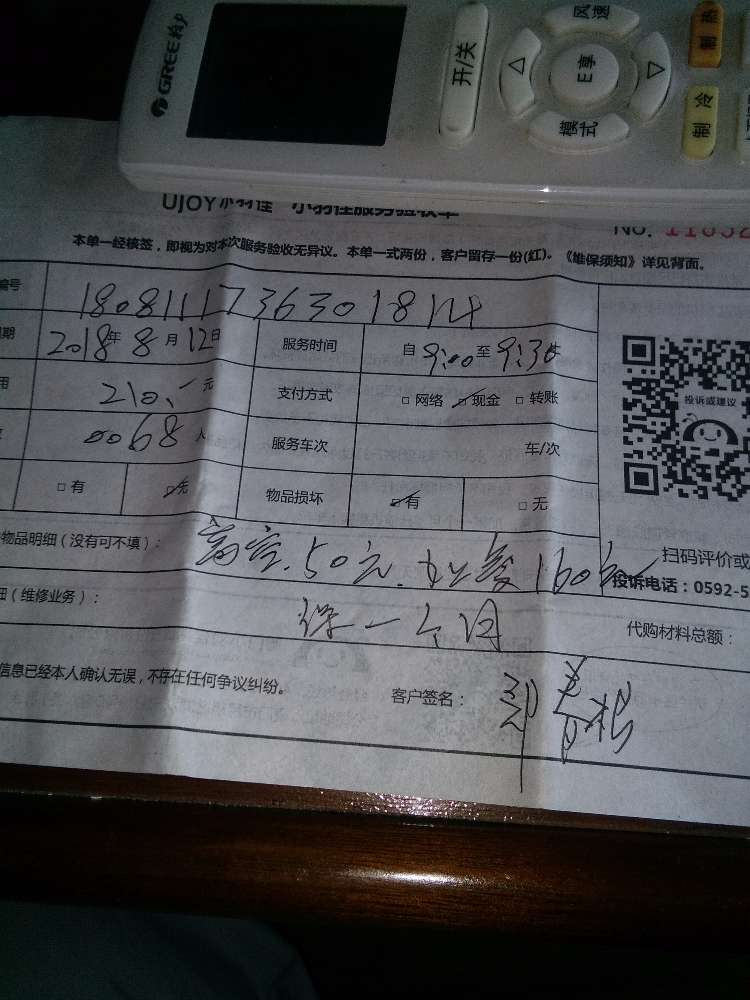 GREE 格力
开/关
风速
E享
模式
制热
制冷
UJOY小羽佳 小羽佳服务验收单
No.
本单一经核签，即视为对本次服务验收无异议。本单一式两份，客户留存一份(红)。《维保须知》详见背面。
编号 1808111736301814
期 2018年8月12日 服务时间 自9:00至9:30
用 210.-元 支付方式 □网络 ☑现金 □转账
0068人 服务车次 车/次
□有 ☑无 物品损坏 ☑有 □无
投诉或建议
物品明细（没有可不填）： 高空.50元.加氨160元
扫码评价或
投诉电话：0592-5
（维修业务）： 保一个月 代购材料总额：
信息已经本人确认无误，不存在任何争议纠纷。 客户签名：